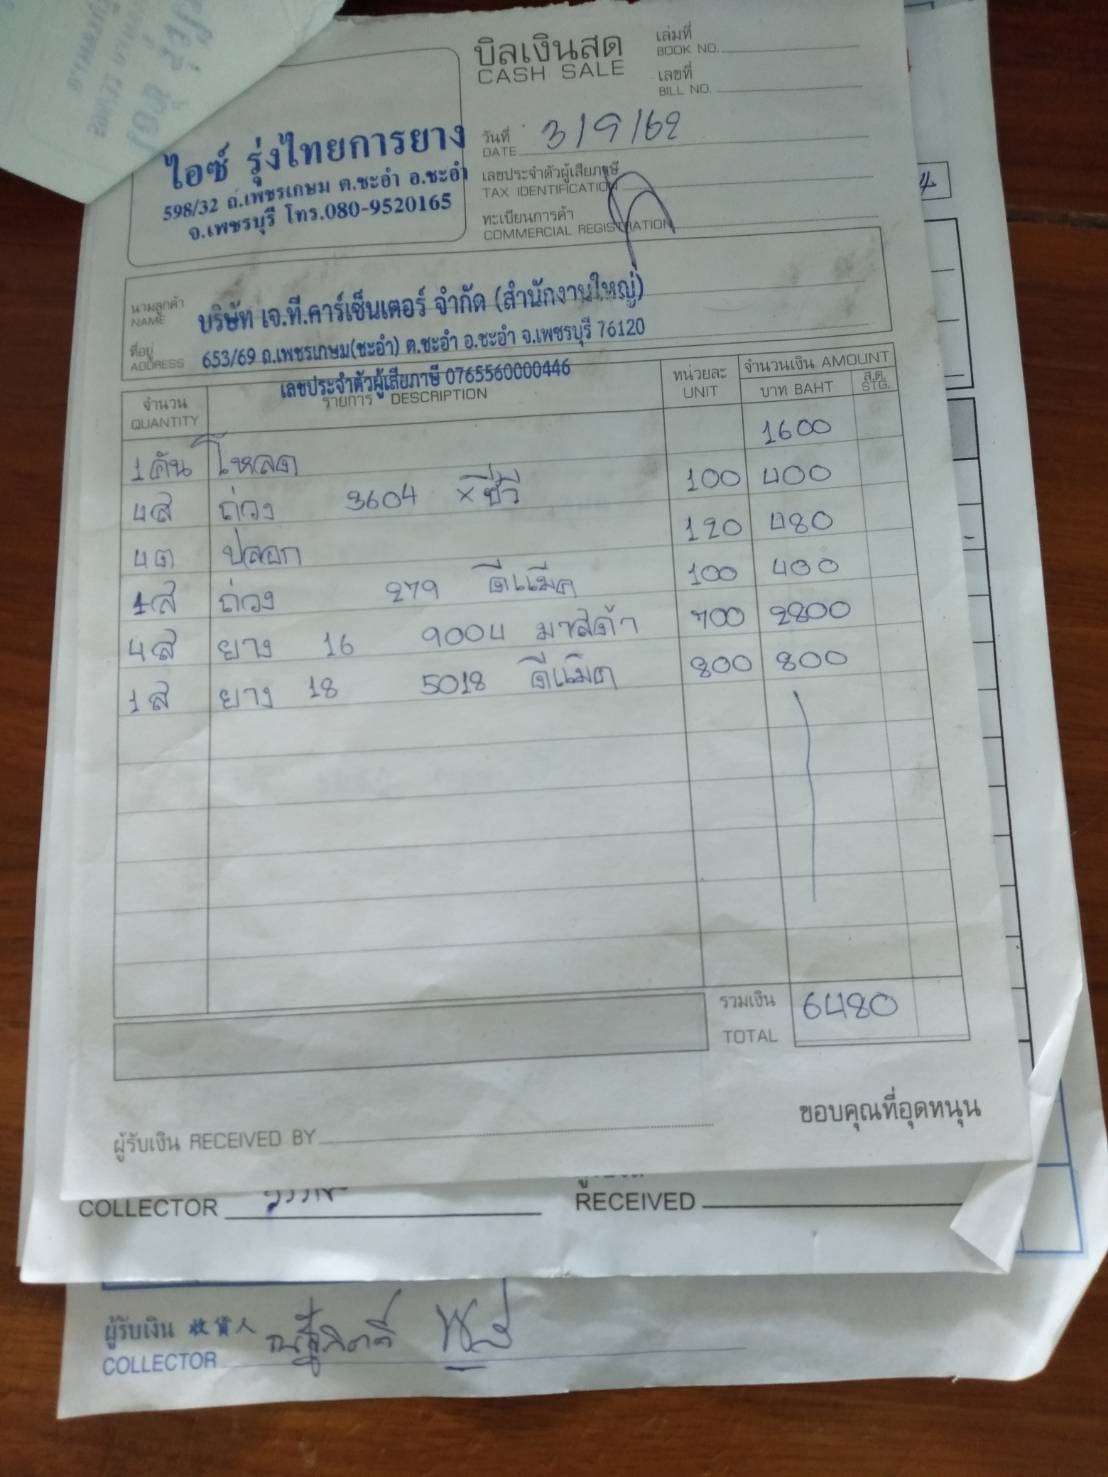 บิลเงินสด
CASH SALE
เล่มที่
BOOK NO.
เลขที่
BILL NO.
วันที่
DATE
3/9/62
เลขประจำตัวผู้เสียภาษี
TAX IDENTIFICATION
ทะเบียนการค้า
COMMERCIAL REGISTRATION
ไอซ์ รุ่งไทยการยาง
598/32 ถ.เพชรเกษม ต.ชะอำ อ.ชะอำ
จ.เพชรบุรี โทร.080-9520165
นามลูกค้า
NAME
บริษัท เจ.ที.คาร์เซ็นเตอร์ จำกัด (สำนักงานใหญ่)
ที่อยู่
ADDRESS
653/69 ถ.เพชรเกษม(ชะอำ) ต.ชะอำ อ.ชะอำ จ.เพชรบุรี 76120
เลขประจำตัวผู้เสียภาษี 0765560000446
จำนวน
QUANTITY
รายการ DESCRIPTION
หน่วยละ
UNIT
จำนวนเงิน AMOUNT
บาท BAHT
ส.ต.
STG.
1คัน โหลด 1600
4ส ถ่วง 3604 xซีวี 100 400
4ต ปลอก 120 480
4ส ถ่วง 279 ดีแม็ค 100 400
4ส ยาง 16 9004 มาสด้า 700 2800
1ส ยาง 18 5018 ดีแม็ค 800 800
รวมเงิน
TOTAL
6480
ขอบคุณที่อุดหนุน
ผู้รับเงิน RECEIVED BY
COLLECTOR
RECEIVED
ผู้รับเงิน 收貨人
COLLECTOR